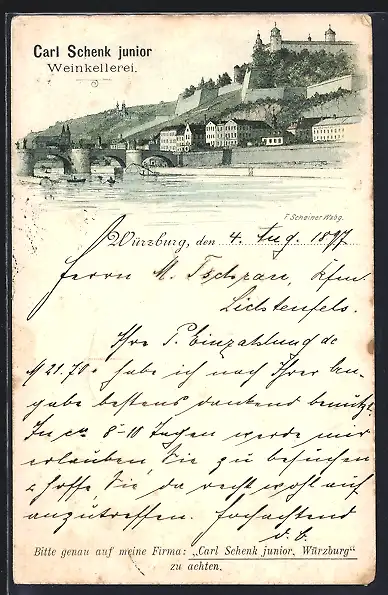 Carl Schenk junior
Weinkellerei.
F. Scheiner Wzbg.
Würzburg, den 4. Aug. 1897
Herrn M. Tschran, Kfm.
Lichtenfels.
Ihre P. Einzahlung de
M 21.70. habe ich nach Ihrer An-
gabe bestens dankend benützt.
In ca 8-10 Tagen werde mir
erlauben, Sie zu besuchen
& hoffe, Sie da recht wohl auf
anzutreffen. Hochachtend
d. O.
Bitte genau auf meine Firma: „Carl Schenk junior, Würzburg"
zu achten.